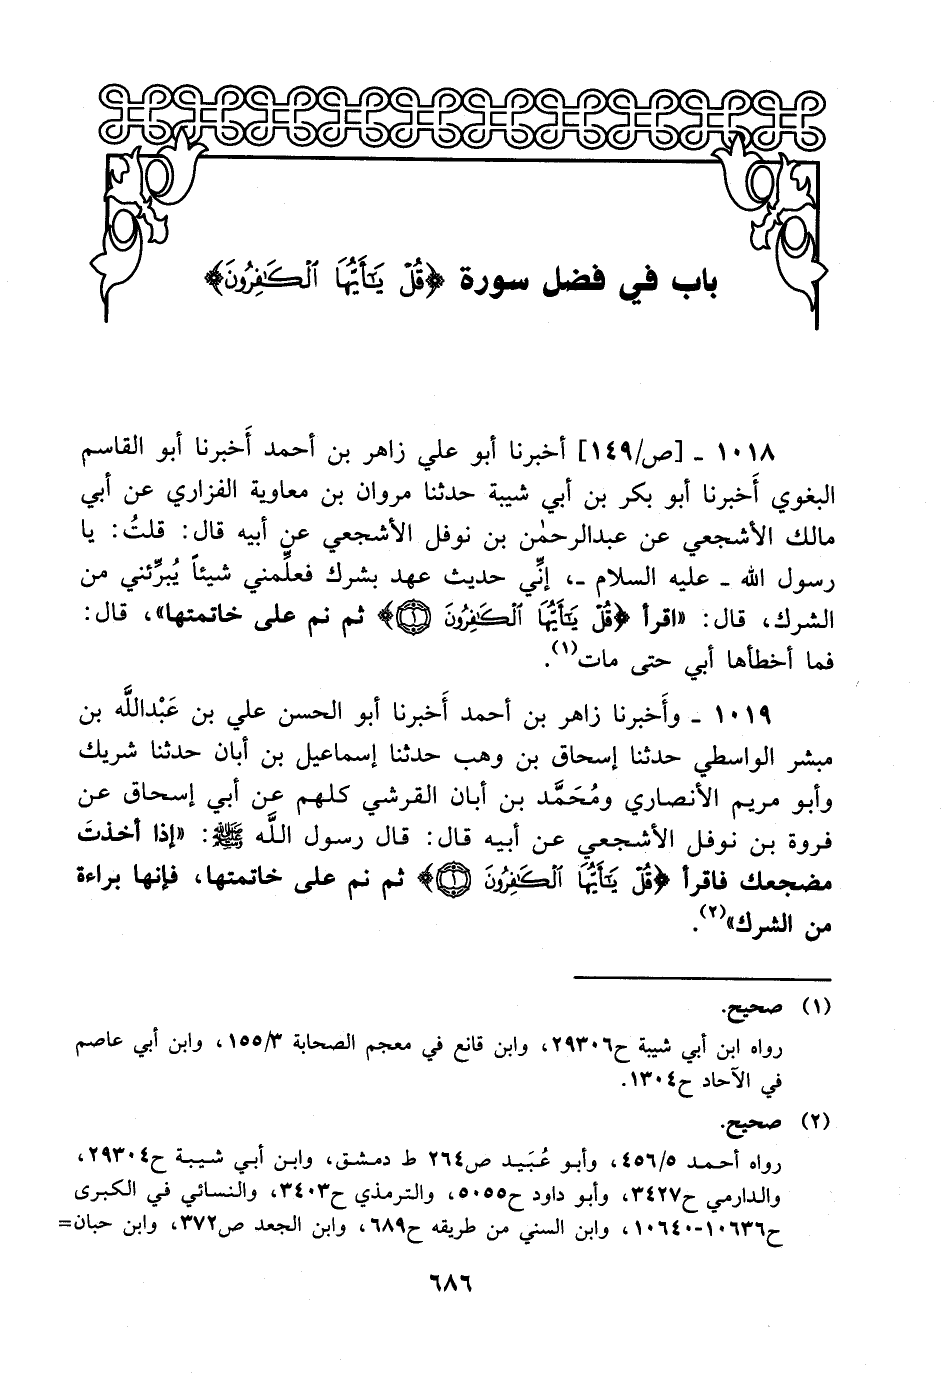 باب في فضل سورة ﴿قُلْ يَـٰٓأَيُّهَا ٱلْكَـٰفِرُونَ﴾
١٠١٨ ـ [ص/١٤٩] أخبرنا أبو علي زاهر بن أحمد أَخبرنا أبو القاسم
البغوي أَخبرنا أبو بكر بن أبي شيبة حدثنا مروان بن معاوية الفزاري عن أبي
مالك الأشجعي عن عبدالرحمٰن بن نوفل الأشجعي عن أبيه قال: قلتُ: يا
رسول الله ـ عليه السلام ـ، إنِّي حديث عهد بشرك فعلِّمني شيئاً يُبرِّئني من
الشرك، قال: «اقرأ ﴿قُلْ يَـٰٓأَيُّهَا ٱلْكَـٰفِرُونَ ۝١﴾ ثم نم على خاتمتها»، قال:
فما أخطأها أبي حتى مات(١).
١٠١٩ ـ وأَخبرنا زاهر بن أحمد أَخبرنا أبو الحسن علي بن عَبْداللَّه بن
مبشر الواسطي حدثنا إسحاق بن وهب حدثنا إسماعيل بن أبان حدثنا شريك
وأبو مريم الأنصاري ومُحَمَّد بن أبان القرشي كلهم عن أبي إسحاق عن
فروة بن نوفل الأشجعي عن أبيه قال: قال رسول اللَّه ﷺ: «إذا أخذتَ
مضجعك فاقرأ ﴿قُلْ يَـٰٓأَيُّهَا ٱلْكَـٰفِرُونَ ۝١﴾ ثم نم على خاتمتها، فإنها براءة
من الشرك»(٢).
(١) صحيح.
رواه ابن أبي شيبة ح٢٩٣٠٦، وابن قانع في معجم الصحابة ١٥٥/٣، وابن أبي عاصم
في الآحاد ح١٣٠٤.
(٢) صحيح.
رواه أحمد ٤٥٦/٥، وأبو عُبَيد ص٢٦٤ ط دمشق، وابن أبي شيبة ح٢٩٣٠٤،
والدارمي ح٣٤٢٧، وأبو داود ح٥٠٥٥، والترمذي ح٣٤٠٣، والنسائي في الكبرى
ح١٠٦٣٦-١٠٦٤٠، وابن السني من طريقه ح٦٨٩، وابن الجعد ص٣٧٢، وابن حبان=
٦٨٦